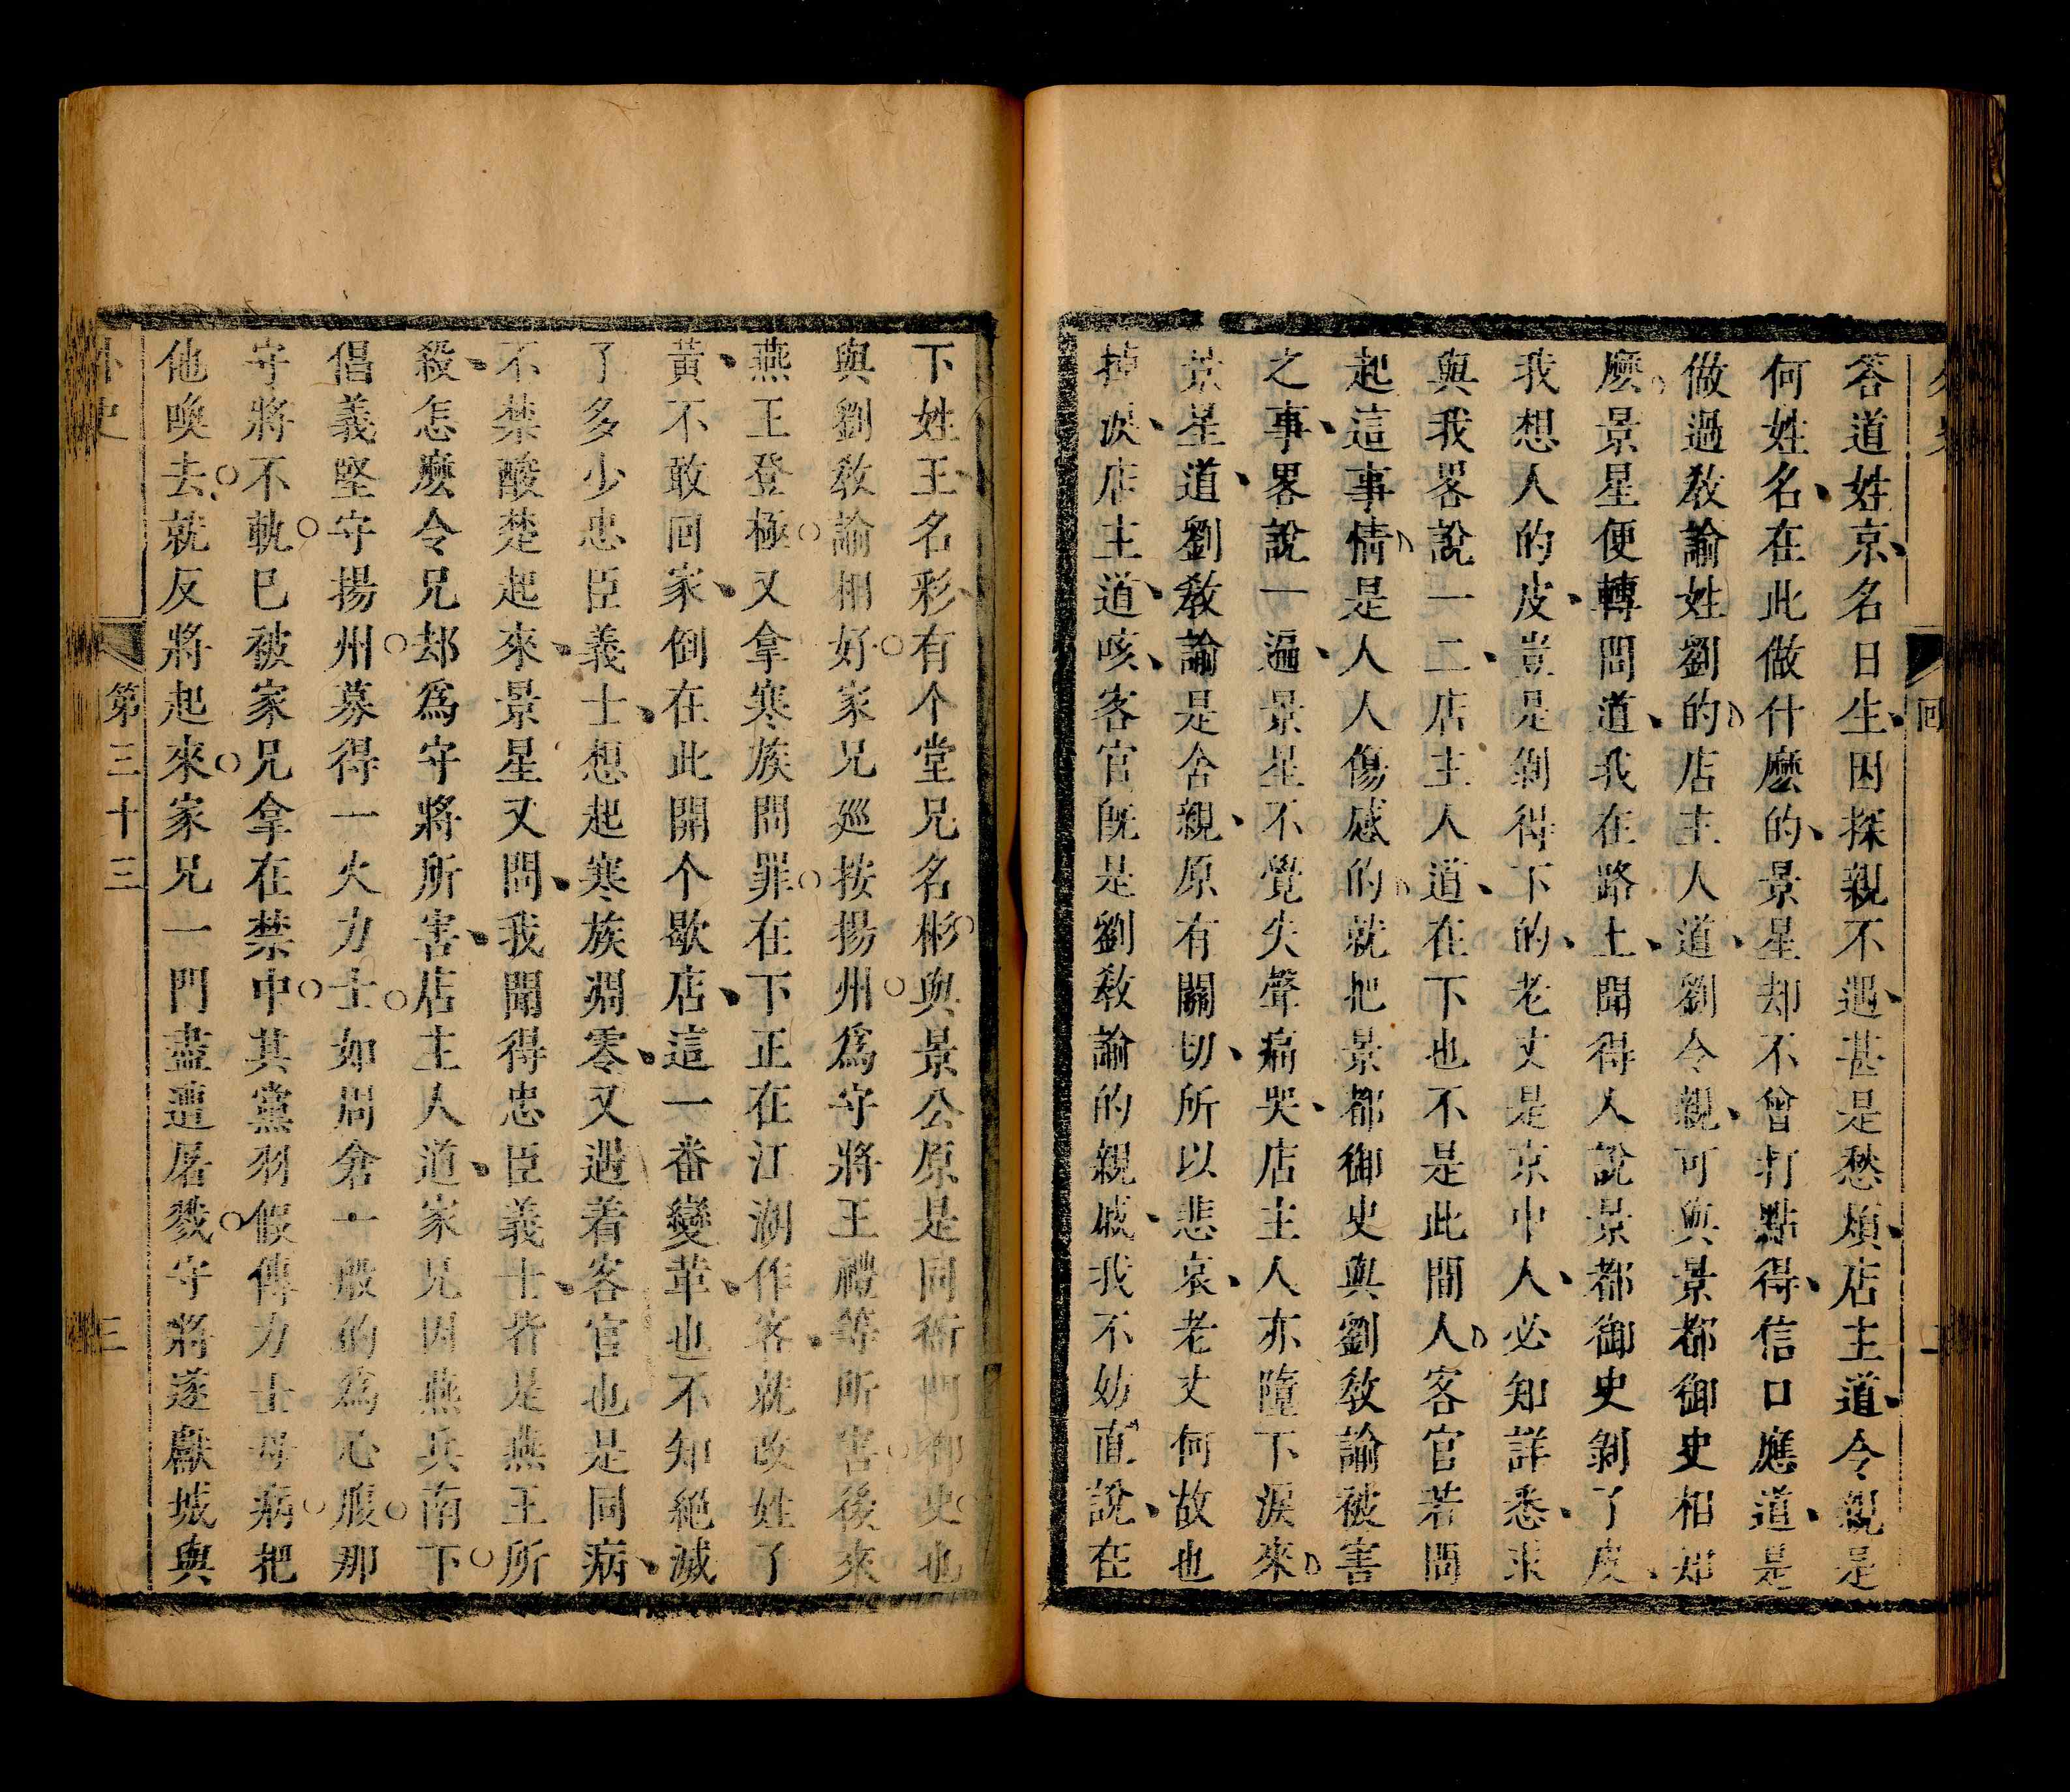 答道姓京名日生因探親不遇甚是愁煩店主道令親是
何姓名在此做什麽的景星却不曾打點得信口應道是
做過敎諭姓劉的店主人道劉令親可與景都御史相知
麽景星便轉問道我在路上聞得人說景都御史剝了皮
我想人的皮豈是剝得下的老丈是京中人必知詳悉求
與我畧說一二店主人道在下也不是此間人客官若問
起這事情是人人傷感的就把景都御史與劉敎諭被害
之事畧說一遍景星不覺失聲痛哭店主人亦墮下淚來
景星道劉敎諭是舍親原有關切所以悲哀老丈何故也
掉淚店主道咳客官旣是劉敎諭的親戚我不妨直說在
回
二
下姓王名彩有个堂兄名彬與景公原是同衙門御史也
與劉敎諭相好家兄廵按揚州爲守將王禮等所害後來
燕王登極又拿寒族問罪在下正在江湖作客就改姓了
黃不敢回家倒在此開个歇店這一番變革也不知絕滅
了多少忠臣義士想起寒族凋零又遇着客官也是同病
不禁酸楚起來景星又問我聞得忠臣義士皆是燕王所
殺怎麽令兄却爲守將所害店主人道家兄因燕兵南下
倡義堅守揚州募得一火力士如周倉一般的爲心腹那
守將不軌已被家兄拿在禁中其黨羽假傳力士母病把
他喚去就反將起來家兄一門盡遭屠戮守將遂獻城與
外史
第三十三
三